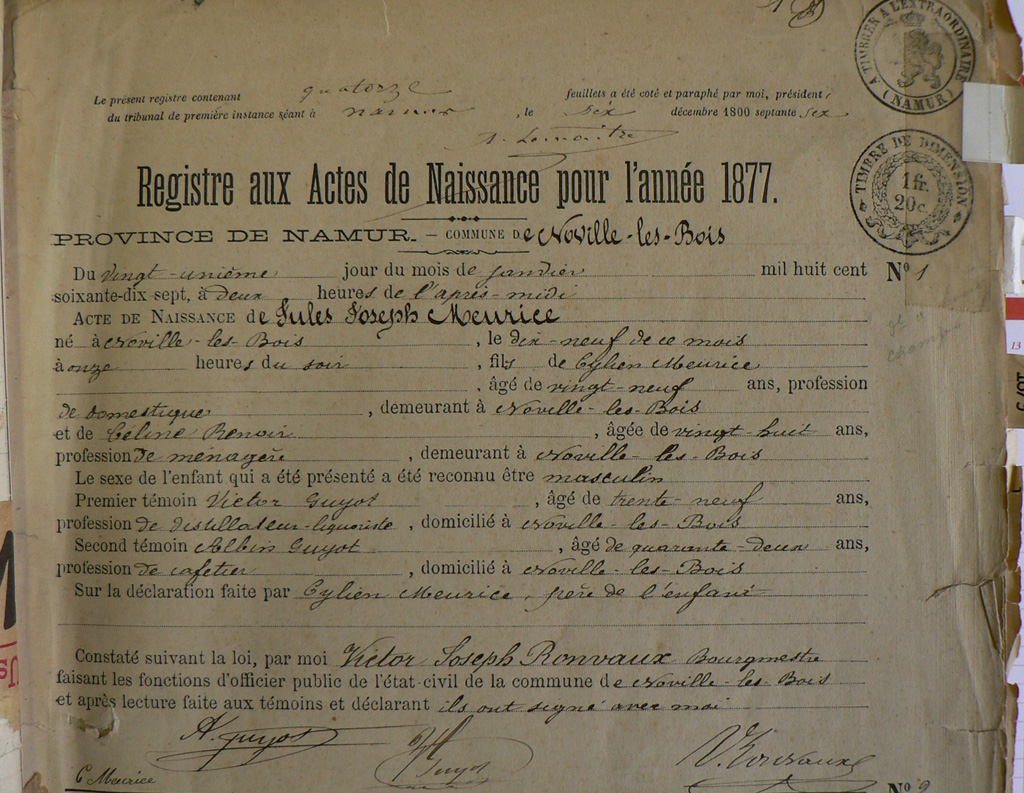 A TIMBRER A L'EXTRAORDINAIRE
(NAMUR)
Le présent registre contenant quatorze feuillets a été coté et paraphé par moi, président
du tribunal de première instance séant à Namur, le six décembre 1800 septante six
Registre aux Actes de Naissance pour l'année 1877.
TIMBRE DE DIMENSION
1 fr.
20 c.
PROVINCE DE NAMUR. — COMMUNE De Noville-les-Bois
Du vingt-unième jour du mois de janvier mil huit cent N° 1
soixante-dix sept, à deux heures de l'après-midi
ACTE DE NAISSANCE de Jules Joseph Meurice
né à Noville-les-Bois, le dix-neuf de ce mois
à onze heures du soir, fils de Cylien Meurice
, âgé de vingt-neuf ans, profession
de domestique, demeurant à Noville-les-Bois
et de Céline Renoir, âgée de vingt-huit ans,
profession de ménagère, demeurant à Noville-les-Bois
Le sexe de l'enfant qui a été présenté a été reconnu être masculin
Premier témoin Victor Guyot, âgé de trente-neuf ans,
profession de distillateur-liquoriste, domicilié à Noville-les-Bois
Second témoin Albin Guyot, âgé de quarante-deux ans,
profession de cafetier, domicilié à Noville-les-Bois
Sur la déclaration faite par Cylien Meurice, père de l'enfant
Constaté suivant la loi, par moi Victor Joseph Ronvaux Bourgmestre
faisant les fonctions d'officier public de l'état-civil de la commune de Noville-les-Bois
et après lecture faite aux témoins et déclarant ils ont signé avec moi
A. Guyot
Guyot
V. Ronvaux
C Meurice
N° 2
13